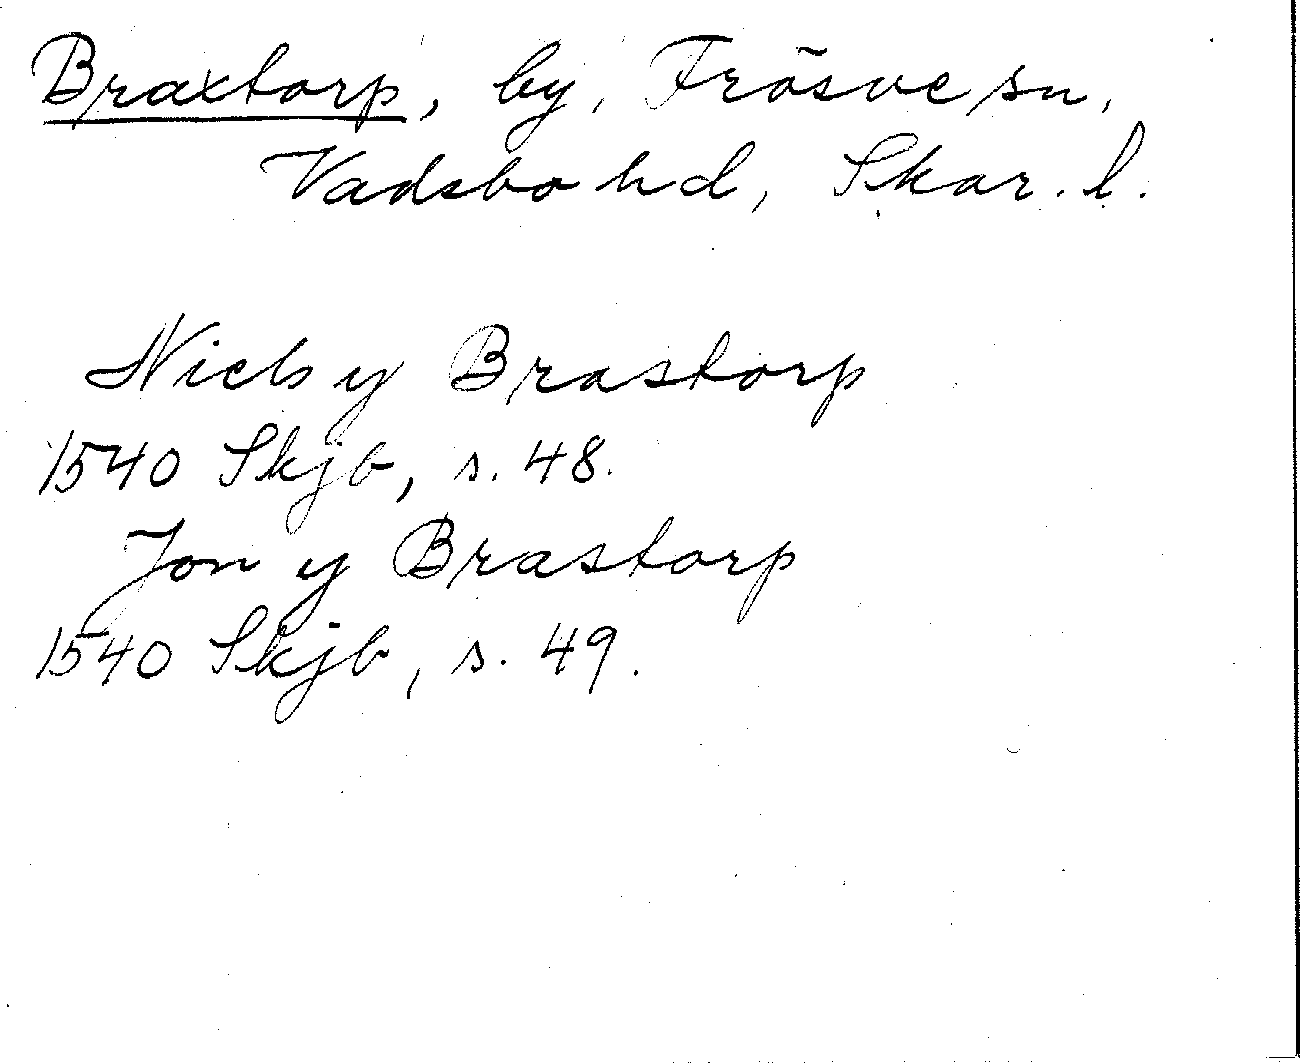 Braxtorp, by, Frösve sn,
Vadsbo hd, Skar. l.
Niels y Brastorp
1540 Skjb, s. 48.
Jon y Brastorp
1540 Skjb, s. 49.